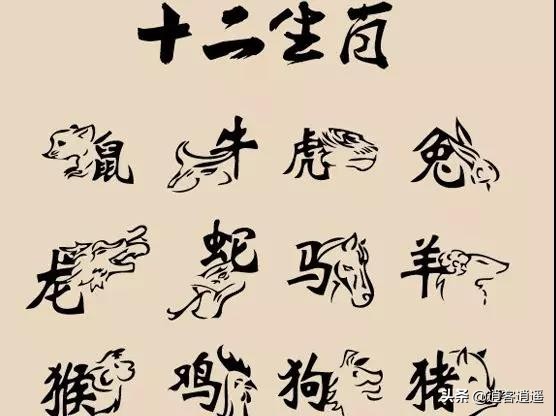 十二生肖
鼠 牛 虎 兔
龙 蛇 马 羊
猴 鸡 狗 猪
头条 @逍客逍遥